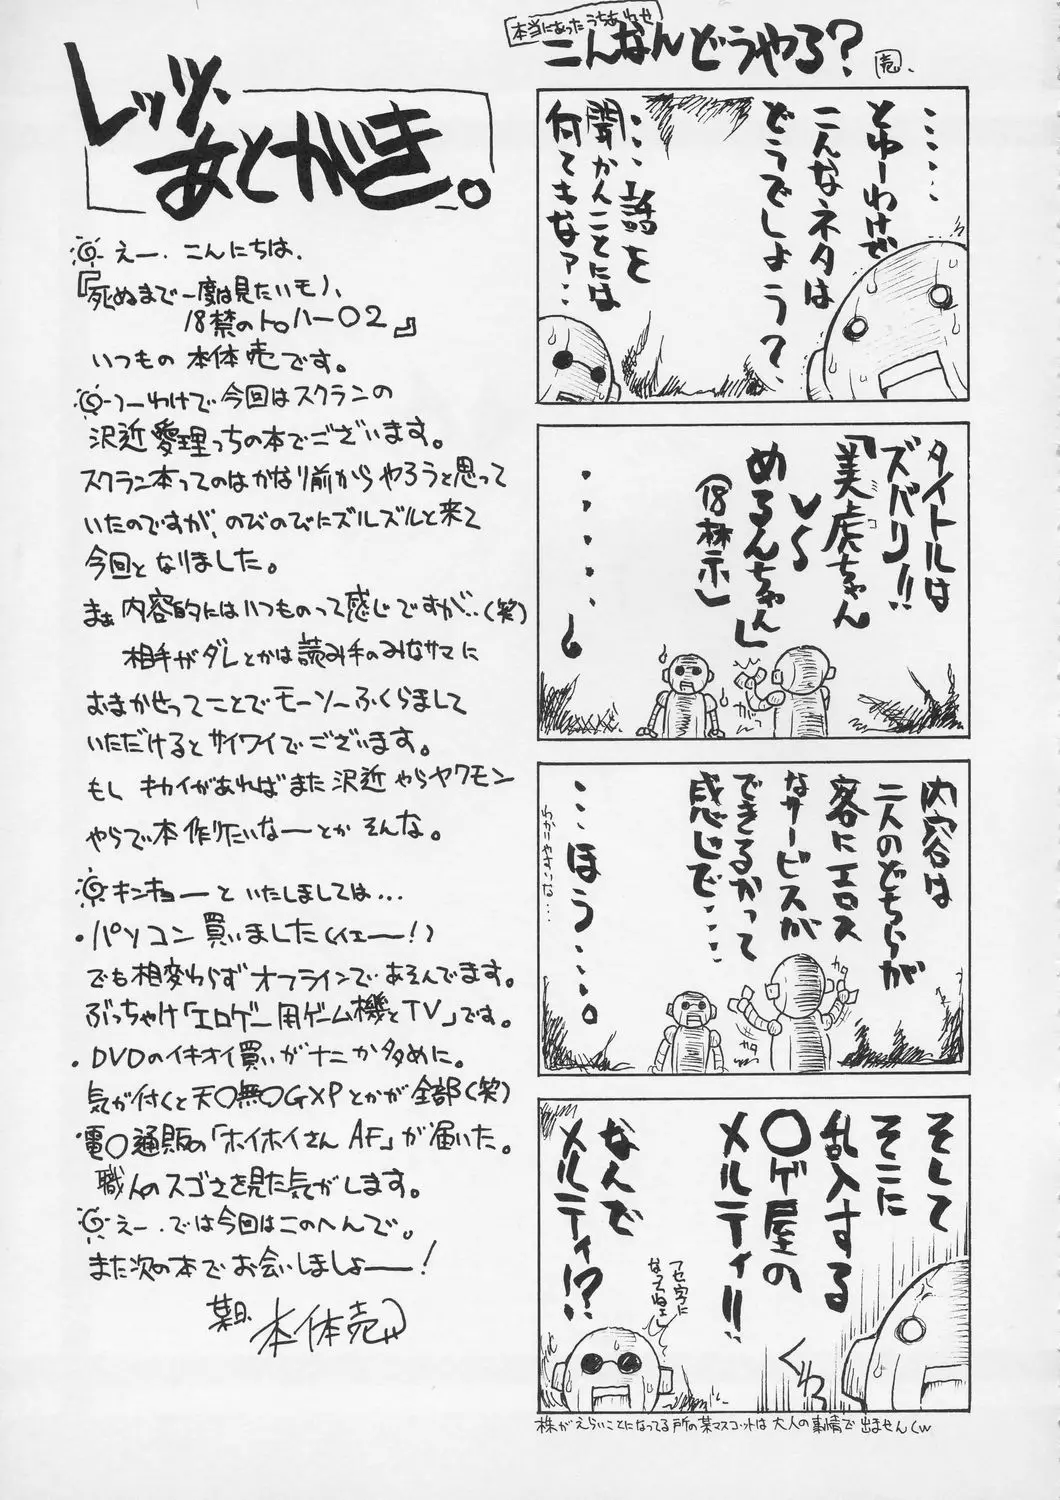 レッツ、
あとがき。
えー、こんにちは、
『死ぬまで一度は見たいモノ、
18禁のトロハー02』
いつもの 本体売です。
つーわけで今回はスクランの
沢近愛理っちの本でございます。
スクラン本ってのはかなり前からやろうと思って
いたのですが、のびのびにズルズルと来て
今回となりました。
まぁ内容的にはいつものって感じですが‥(笑)
相手がダレとかは読み手のみなサマに
おまかせってことでモーソーふくらまして
いただけるとサイワイでございます。
もし キカイがあればまた沢近やらヤクモン
やらで本作りたいなーとか そんな。
キンキョーといたしましては…
・パソコン買いました(イエー!)
でも相変わらずオフラインであそんでます。
ぶっちゃけ「エロゲー用ゲーム機とTV」です。
・DVDのイキオイ買いがナニか多めに。
気が付くと天〇無〇GXPとかが全部(笑)
電〇通販の「ホイホイさんAF」が届いた。
職人のスゴさを見た気がします。
えー、では今回はこのへんで。
また次の本でお会いしましょー!
某日、本体売
本当にあったうちあわせ
こんなんどうやる?
売、
‥‥‥
とゆーわけで
こんなネタは
どうでしょう?
‥‥話を
聞かんことには
何てもなァ‥‥
タイトルは
ズバリ!!
「美虎ちゃん
ミコ
VS
めるんちゃん」
(18禁)
‥‥‥
内容は
二人のどちらが
客にエロス
なサービスが
できるかって
感じで‥‥
‥‥ほう‥‥。
わかりやすいな‥‥
カタ
カタ
そして
そこに
乱入する
〇ゲ屋の
メルティ!!
なんで
メルティ!?
フセ字に
なってねェ
ぐわっ
株がえらいことになってる所の某マスコットは大人の事情で出ません(w